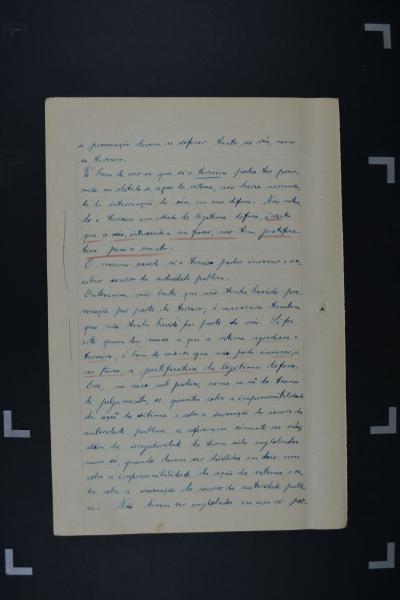 a provocação devem se referir tanto ao réu, como
ao terceiro.
É bem de ver-se que si o terceiro podia ter preve-
nido ou obstado a ação da vítima, não havia necessida-
de da intervenção do réu, em sua defesa. Não estan-
do o terceiro em estado de legítima defesa, é certo
que o réu, intervindo a seu favor, não tem justifica-
tiva para o seu ato.
O mesmo sucede si o terceiro podia invocar e re-
ceber socorro da autoridade publica.
Outrossim, não basta que não tenha havido pro-
vocação por parte do terceiro, é necessario tambem
que não tenha havido por parte do réu. Si foi
este quem deu causa a que a vítima agredisse o
terceiro, é bem de ver-se que não pode invocar, a
seu favor, a justificativa da legítima defesa.
Ora, no caso sub judice, como se vê do termo
de julgamento, os quesitos sobre a impossibilidade
da ação da vítima e sobre a invocação do socorro da
autoridade publica se referiram somente ao réu,
além da irregularidade de terem sido englobados
num só, quando devem ser divididos em dois: um
sobre a da ação da vítima e ou-
tro sobre a invocação do socorro da autoridade publi-
ca. Não devem ser englobados em um só por-